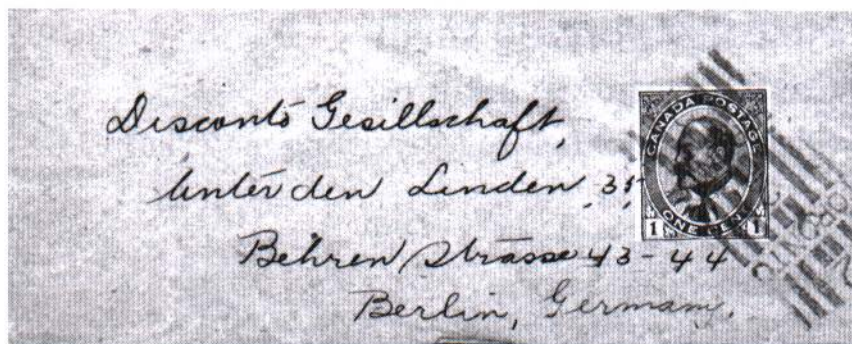 Disconto Gesillschaft,
Unter den Linden 35
Behren strasse 43-44
Berlin, Germany.
CANADA POSTAGE
ONE CENT
1 1